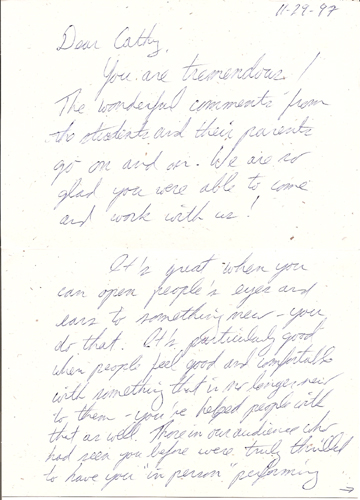 11-29-97
Dear Cathy,
You are tremendous!
The wonderful comments from
the students and their parents
go on and on. We are so
glad you were able to come
and work with us!
It's great when you
can open people's eyes and
ears to something new - you
do that. It's particularly good
when people feel good and comfortable
with something that is no longer new
to them - you've helped people with
that as well. Those in our audience who
had seen you before were truly thrilled
to have you "in person" performing
→